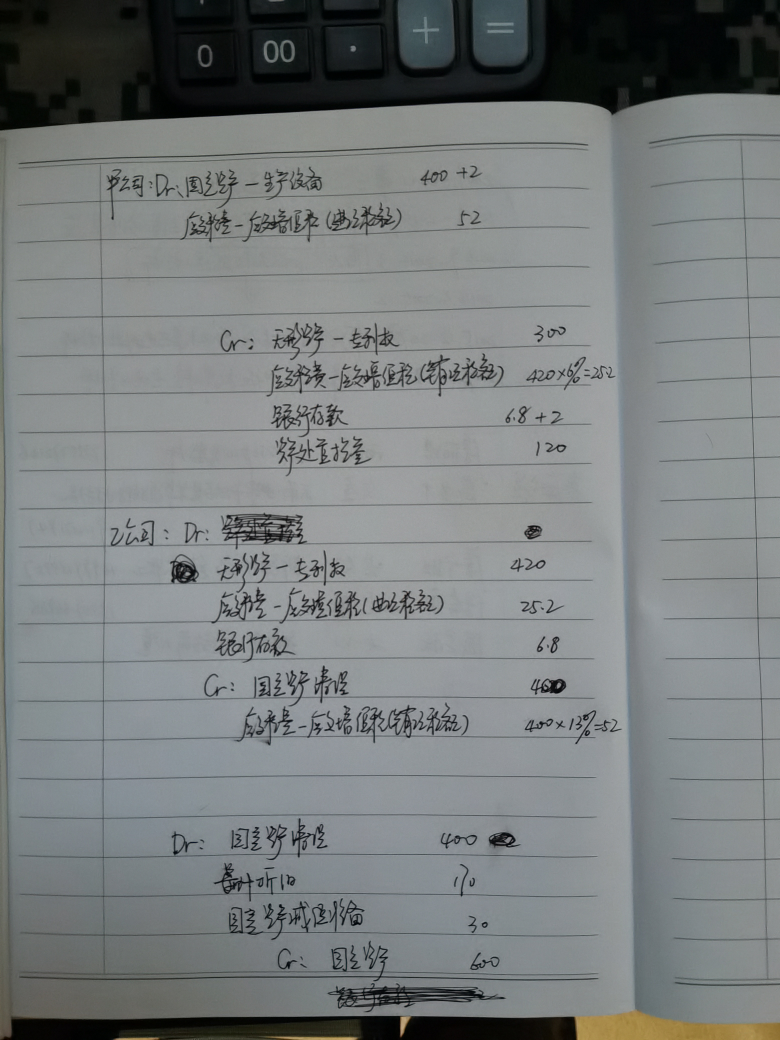 0 00 · + =
甲公司: Dr: 固定资产-生产设备 400+2
应交税费-应交增值税(进项税额) 52
Cr: 无形资产-专利权 300
应交税费-应交增值税(销项税额) 420×6%=25.2
银行存款 6.8+2
资产处置损益 120
乙公司: Dr:
无形资产-专利权 420
应交税费-应交增值税(进项税额) 25.2
银行存款 6.8
Cr: 固定资产清理
应交税费-应交增值税(销项税额) 400×13%=52
Dr: 固定资产清理 400
累计折旧 170
固定资产减值准备 30
Cr: 固定资产 600